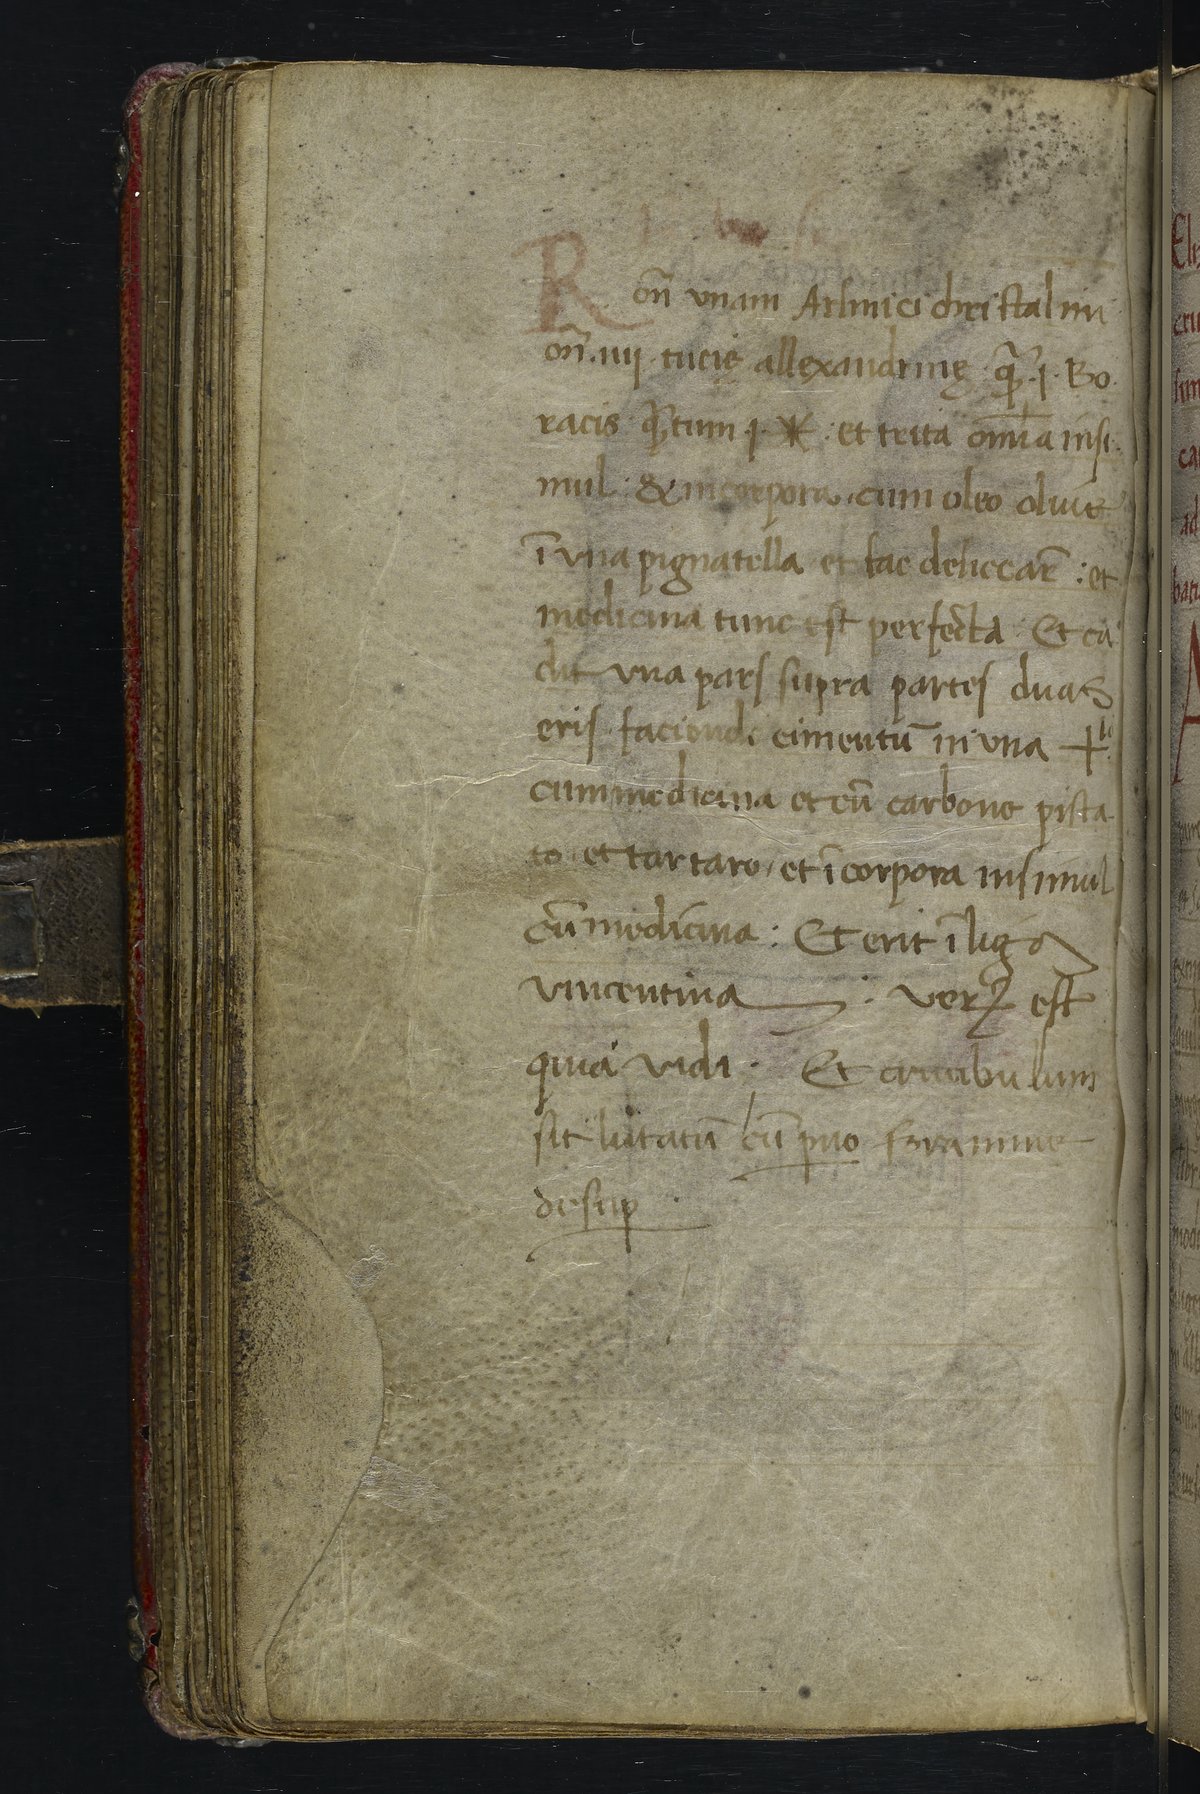 R
on̄ vnam Arsnici christalini
on̄. iiij. tucię allexandrinę. qr̄. j. Bo
racis qrtum j. ✶ : et trita om̄ia insi
mul : & incorpora, cum oleo oliuę
ī vna pignatella et fac desiccar̄ : et
medicina tunc est perfecta. Et ca
dit vna pars supra partes duas
eris faciendi cimentū in vna +li
cum medicina et cū carbone pista
to, et tartaro, et īcorpora insimul
cū medicina : Et erit ī liga
vincentina : verꝝ est
quia vidi. Et crucibulum
sit lutatū cū paruo foramine
desup